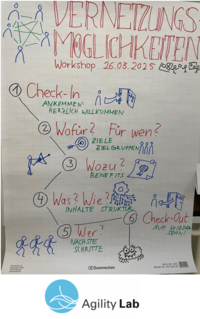 VERNETZUNGS
MÖGLICHKEITEN
Workshop 26.03.2025
1 Check-In
ANKOMMEN
HERZLICH WILLKOMMEN
2 Wofür? Für wen?
ZIELE
ZIELGRUPPEN
3 Wozu?
BENEFITS
4 Was? Wie?
INHALTE STRUKTUR
6 Check-Out
AUF WIEDER
SEHN!
5 Wer?
NÄCHSTE
SCHRITTE
Agility Lab